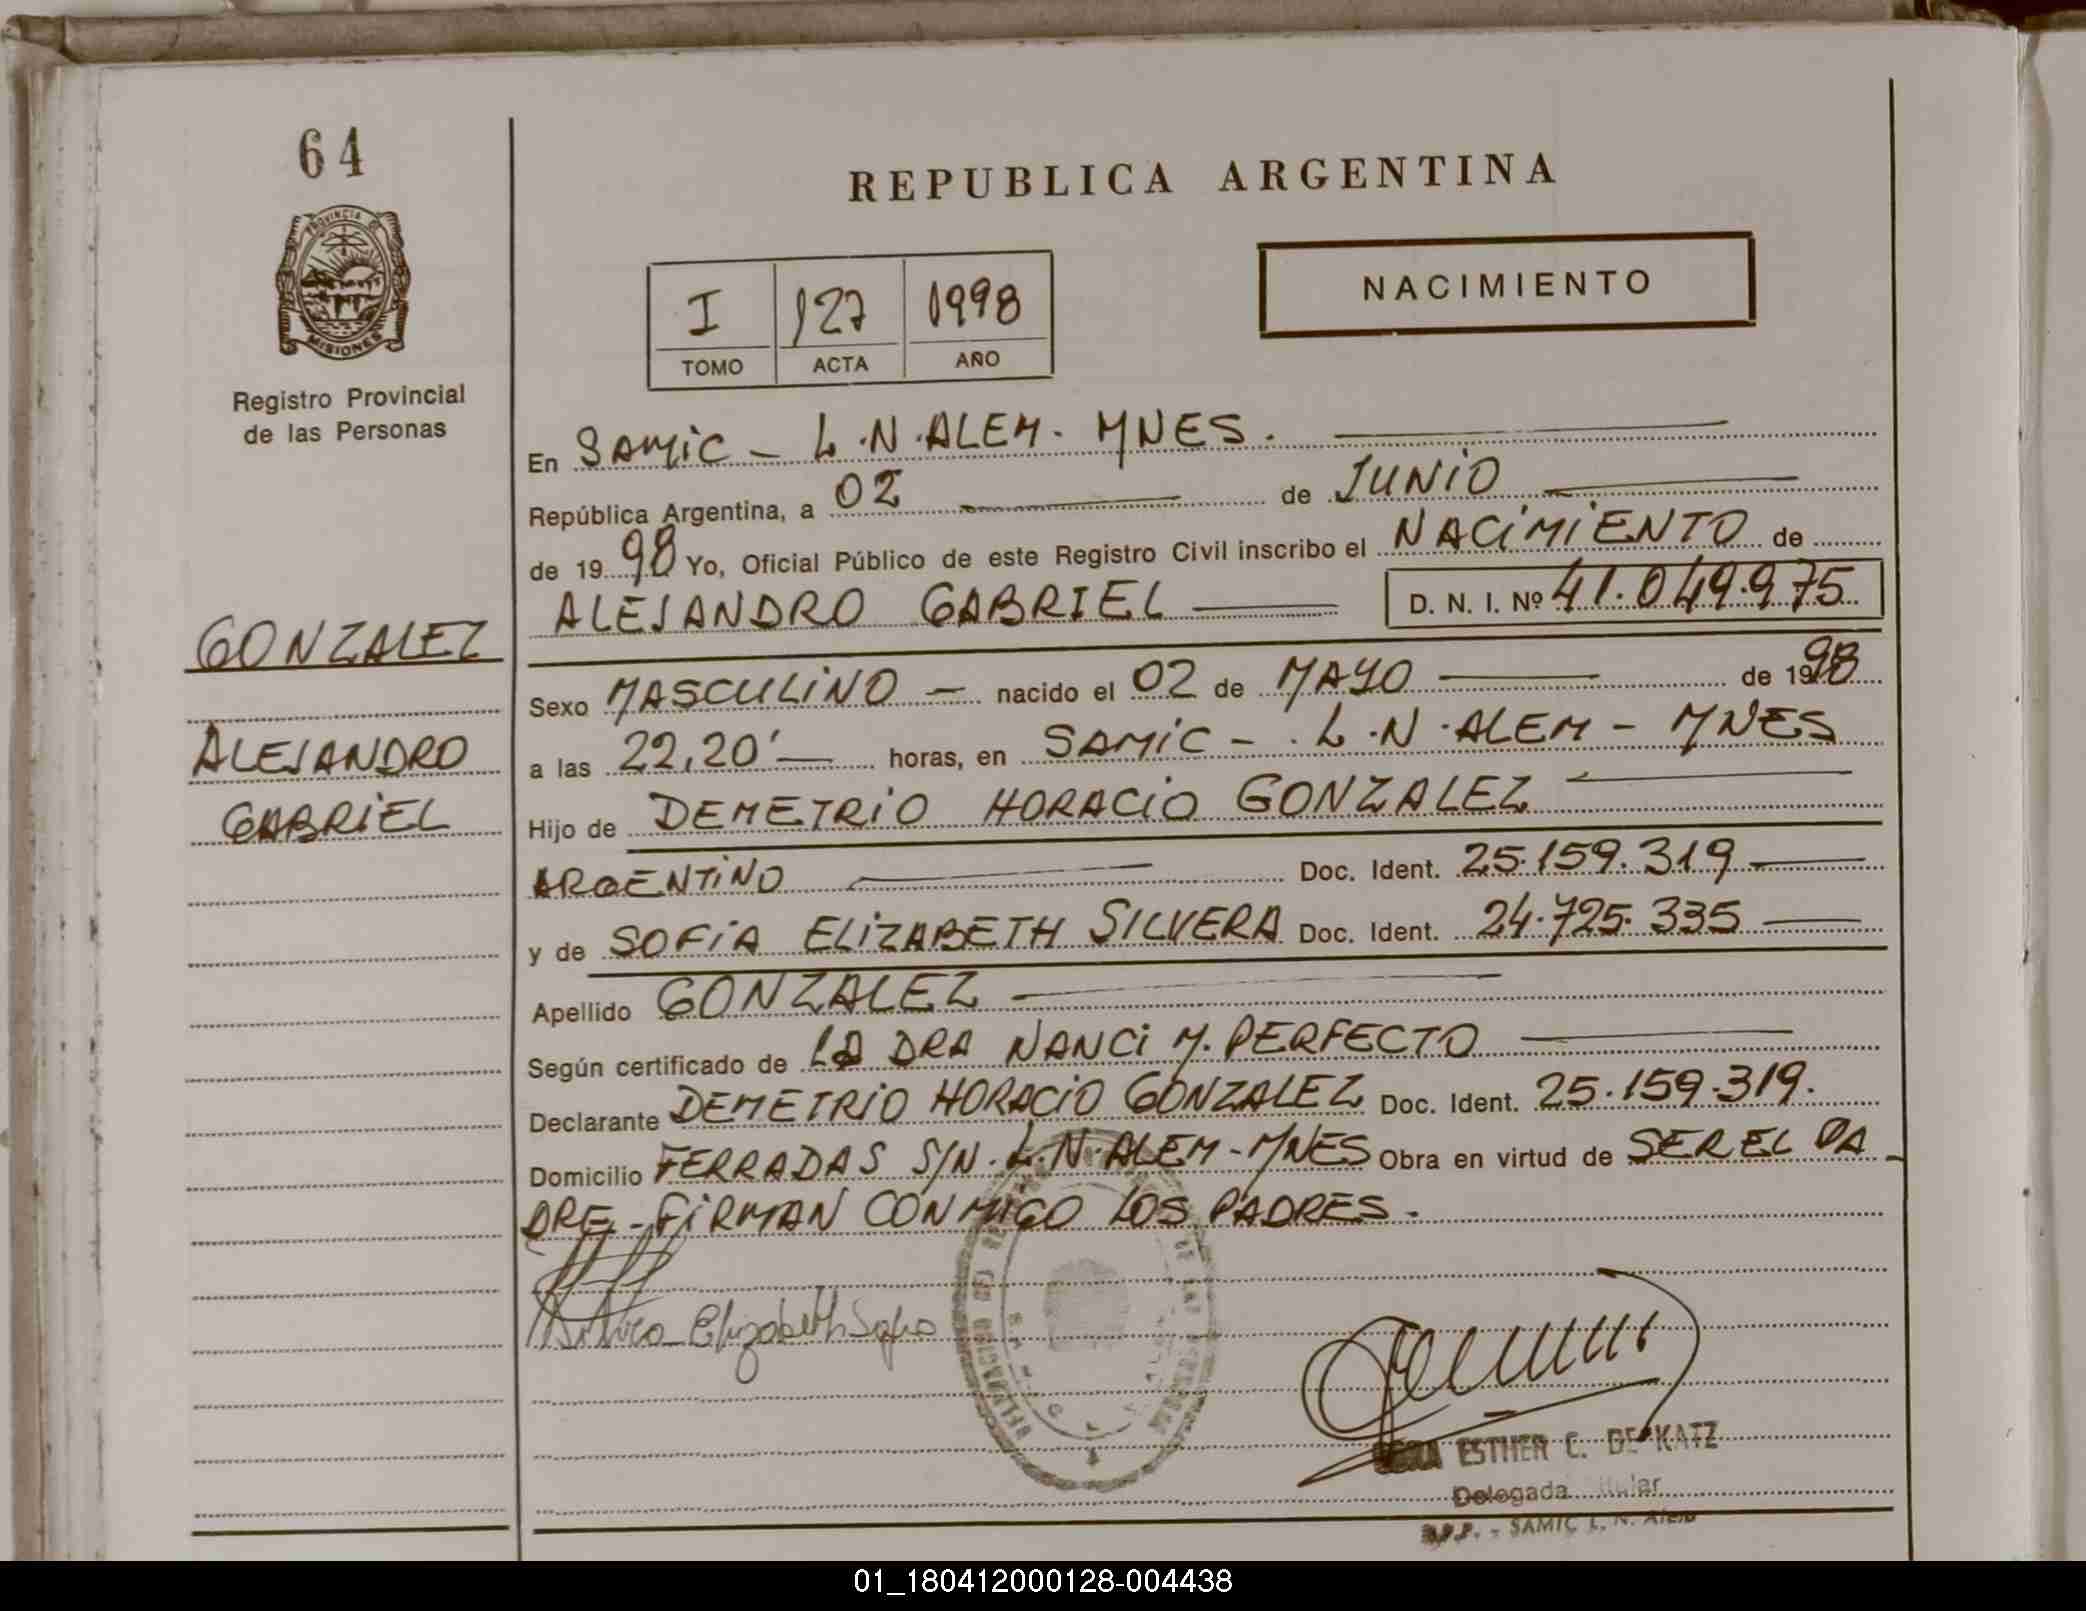 64
REPUBLICA ARGENTINA
PROVINCIA DE
MISIONES
Registro Provincial
de las Personas
I 127 1998
TOMO ACTA AÑO
NACIMIENTO
En SAMIC - L.N.ALEM. MNES.
República Argentina, a 02 de JUNIO
de 1998 Yo, Oficial Público de este Registro Civil inscribo el NACIMIENTO de
ALEJANDRO GABRIEL D. N. I. Nº 41.049.975
GONZALEZ
ALEJANDRO
GABRIEL
Sexo MASCULINO - nacido el 02 de MAYO de 1998
a las 22,20' horas, en SAMIC - L.N.ALEM - MNES
Hijo de DEMETRIO HORACIO GONZALEZ
ARGENTINO Doc. Ident. 25.159.319
y de SOFIA ELIZABETH SILVERA Doc. Ident. 24.725.335
Apellido GONZALEZ
Según certificado de LA DRA NANCI M. PERFECTO
Declarante DEMETRIO HORACIO GONZALEZ Doc. Ident. 25.159.319.
Domicilio FERRADAS S/N. L.N.ALEM-MNES Obra en virtud de SER EL PA-
DRE - FIRMAN CONMIGO LOS PADRES.
Elizabeth Sofia
ESTHER C. DE KATZ
Delegada Titular
R.P.P. - SAMIC L. N. Alem
01_180412000128-004438